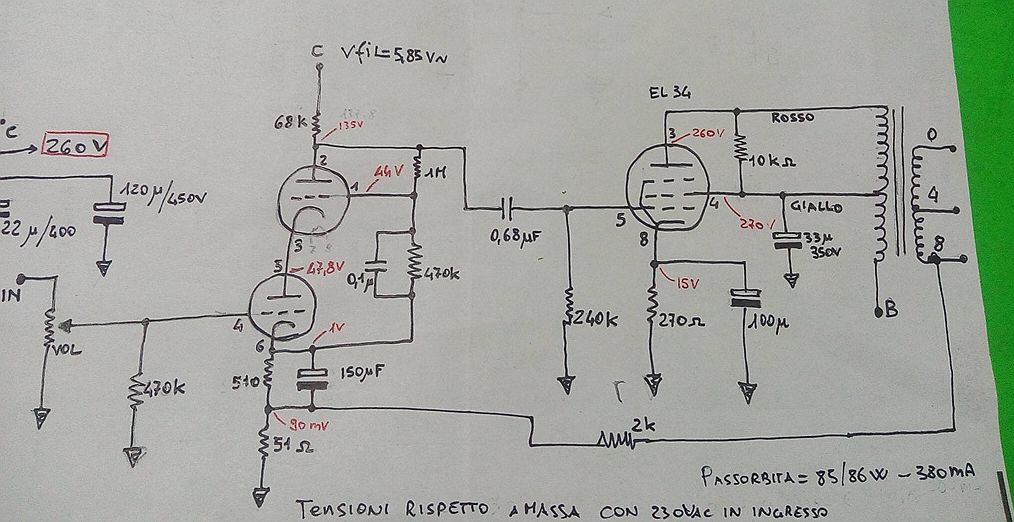 C
Vfil=5,85V~
EL 34
°C
260V
68k
135V
3
260V
ROSSO
0
120µ/450V
2
1
44V
1M
10kΩ
4
22µ/400
3
5
4
270V
GIALLO
8
0,68µF
8
33µ
350V
5
47,8V
0,1µ
470k
15V
IN
4
VOL
6
1V
240k
270Ω
100µ
B
470k
510
150µF
90mV
2k
51Ω
PASSORBITA = 85/86W - 380mA
TENSIONI RISPETTO A MASSA CON 230VAC IN INGRESSO